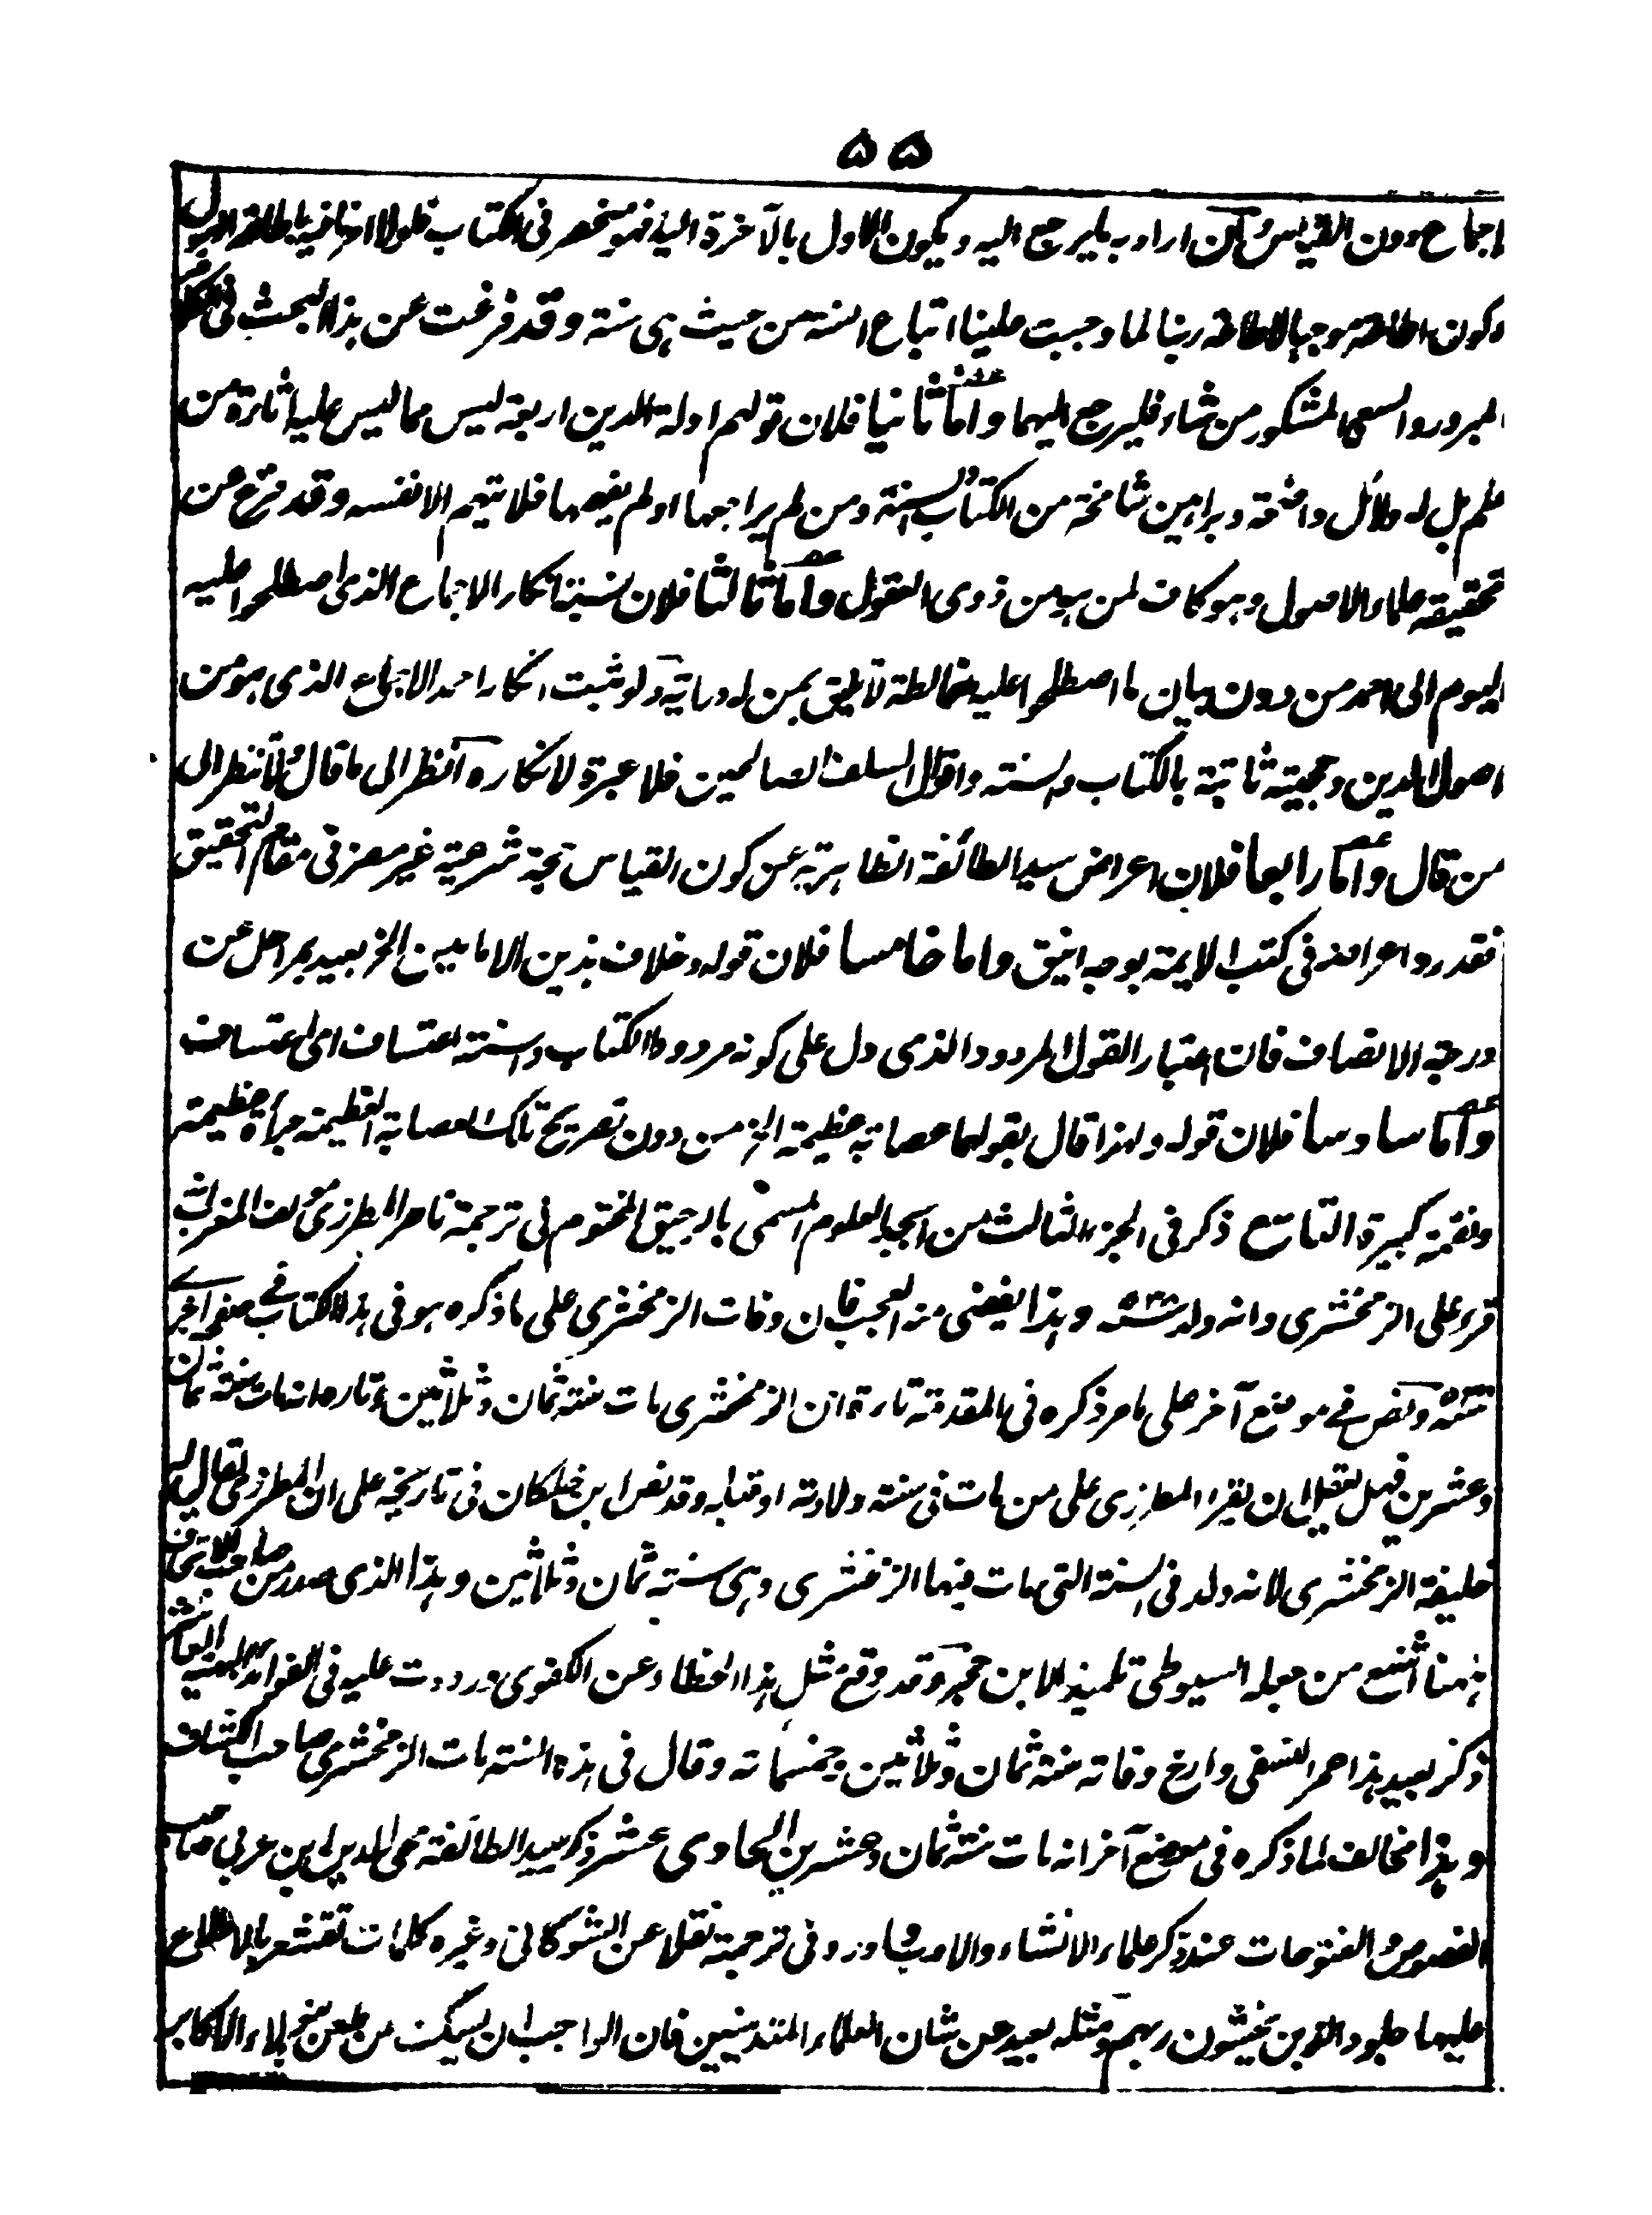 ٥٥
اجماع دون القياس وان اراد به ما يرجع اليه ويكون الاول بالآخرة اليه فهو منحصر فى الكتاب فلولا اخبار فيه باطاعة الرسول
وكون اطاعته موجبا لاطاعة ربنا لما وجبت علينا اتباع السنة من حيث هى سنة وقد فرغت عن هذا البحث فى الكلام
المبرور والسعى المشكور من شاء فليرجع اليهما واما ثانيا فلان قولهم ادلة الدين اربعة ليس مما ليس عليه اثارة من
علم بل له دلائل واضحة وبراهين شامخة من الكتاب والسنة ومن لم يراجعها او لم يفهمها فلا يتهم الا نفسه وقد فرغ عن
تحقيقه علماء الاصول وهو كاف لمن هو من ذوى العقول واما ثالثا فلان نسبة انكار الاجماع الذى اصطلحوا عليه
اليوم الى احمد من دون بيان ما اصطلحوا عليه مغالطة لا تليق بمن له دراية ولو ثبت انكار احمد الاجماع الذى هو من
اصول الدين وحجيته ثابتة بالكتاب والسنة واقوال السلف الصالحين فلا عبرة لانكاره انظر الى ما قال ولا تنظر الى
من قال واما رابعا فلان اعراض سيد الطائفة الظاهرية عن كون القياس حجة شرعية غير مضر فى مقام التحقيق
فقد رد اعراضه فى كتب الايمة بوجه انيق واما خامسا فلان قوله وخلاف هذين الامامين الخ بعيد بمراحل عن
درجة الانصاف فان اعتبار القول المردود الذى دل على كونه مردودا الكتاب والسنة اعتساف اى اعتساف
واما سادسا فلان قوله ولهذا قال بقولهما عصابة عظيمة الخ من دون تصريح تلك العصابة العظيمة جرأة عظيمة
ونقمة كبيرة التاسع ذكر فى الجزء الثالث من ابجد العلوم المسمى بالرحيق المختوم فى ترجمة ناصر المطرزى مؤلف المغرب انه
قرء على الزمخشرى وانه ولد سنة ٥٣٨ وهذا يفضى منه العجب فان وفات الزمخشرى على ما ذكره هو فى هذا الكتاب فى صفحة اخرى
سنة ٥٣٨ ونص فى موضع آخر على ما مر ذكره فى المقدمة تارة ان الزمخشرى مات سنة ثمان وثلاثين وتارة انه مات سنة ثمان
وعشرين فهل يعقل ان يقرء المطرزى على من مات فى سنة ولادته او قبله وقد نص ابن خلكان فى تاريخه على ان المطرزى يقال له
خليفة الزمخشرى لانه ولد فى السنة التى مات فيها الزمخشرى وهى سنة ثمان وثلاثين وهذا الذى صدر من صاحب الاتحاف
ههنا اشنع من جعله السيوطى تلميذا لابن حجر وقد وقع مثل هذا الخطاء عن الكفوى ورددت عليه فى الفوائد البهية العاشر
ذكر بعيد هذا عمر النسفى وارخ وفاته سنة ثمان وثلاثين وخمسمائة وقال فى هذه السنة مات الزمخشرى صاحب الكشاف
وهذا مخالف لما ذكره فى موضع آخر انه مات سنة ثمان وعشرين الحادى عشر ذكر سيد الطائفة محى الدين ابن عربى صاحب
الفصوص والفتوحات عند ذكر علماء الانشاء والادب واورد فى ترجمته نقلا عن الشوكانى وغيره كلمات تقشعر بالاطلاع
عليها جلود الذين يخشون ربهم ومثله بعيد عن شان العلماء المتدينين فان الواجب ان يسكت من طعن نحو هؤلاء الاكابر